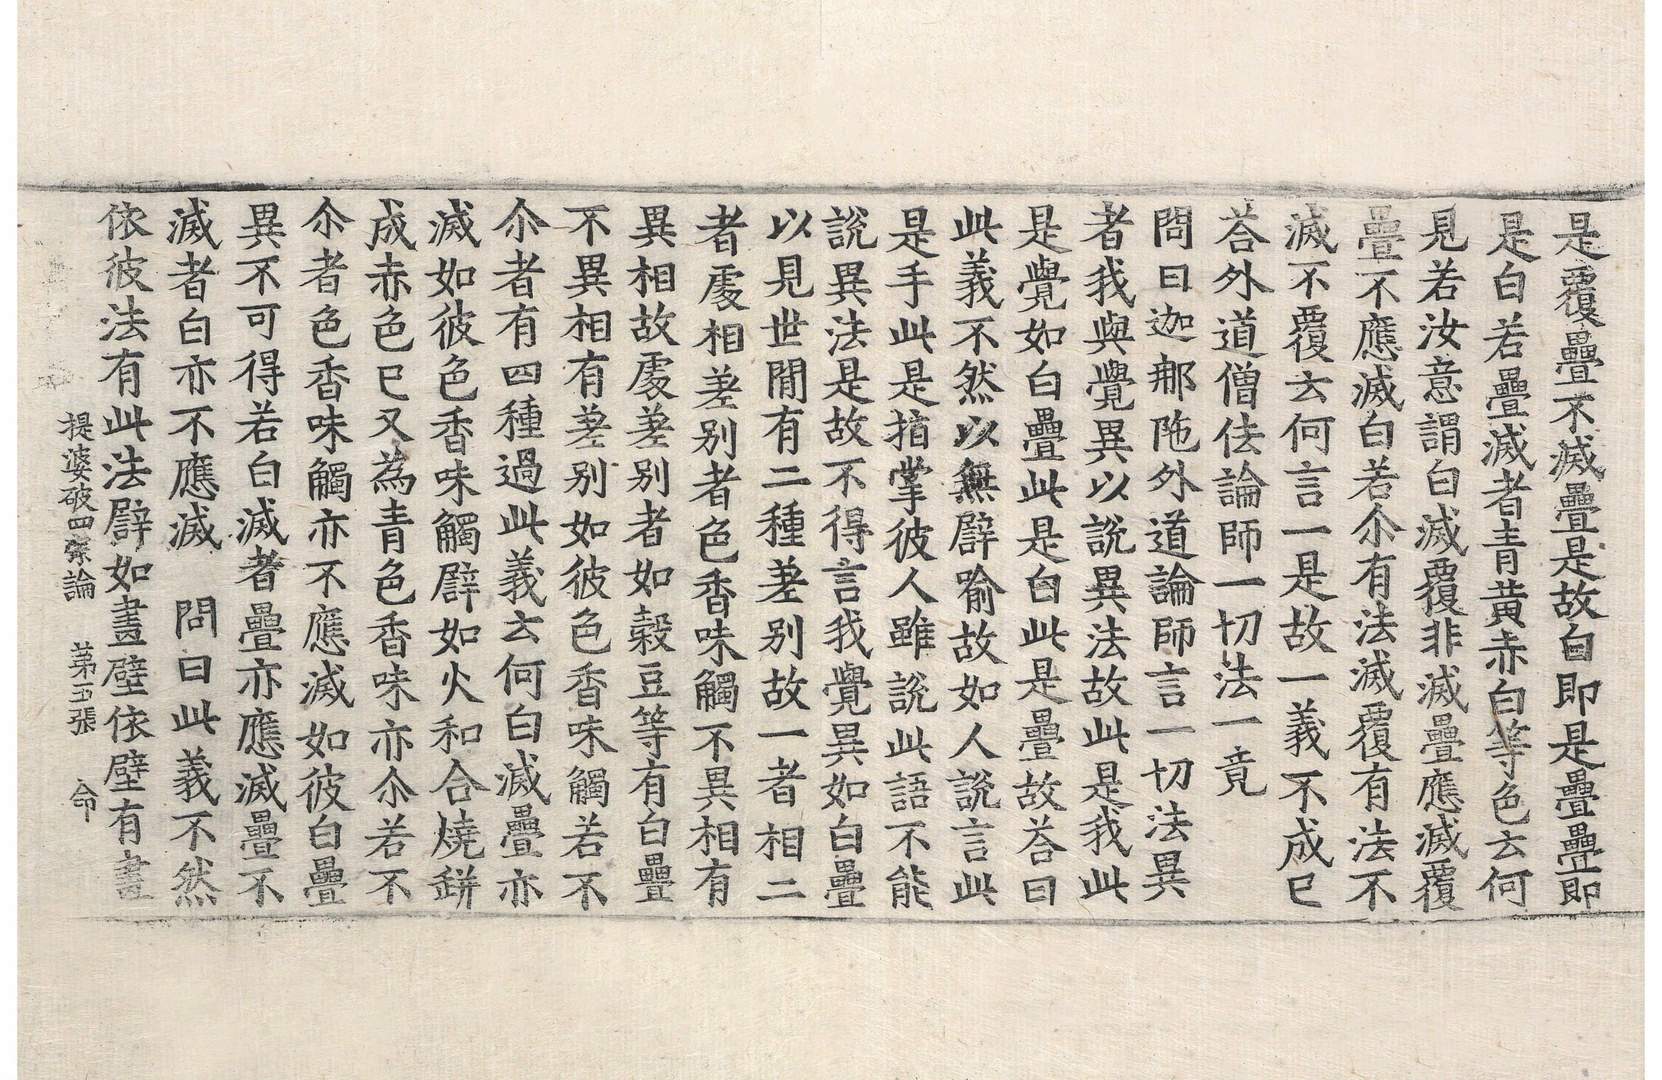 是覆疊不滅疊是故白即是疊疊即
是白若疊滅者青黃赤白等色云何
見若汝意謂白滅覆非滅疊應滅覆
疊不應滅白若尒有法滅覆有法不
滅不覆云何言一是故一義不成已
荅外道僧佉論師一切法一竟
問曰迦那陁外道論師言一切法異
者我與覺異以說異法故此是我此
是覺如白疊此是白此是疊故荅曰
此義不然以無譬喻故如人說言此
是手此是指掌彼人雖說此語不能
說異法是故不得言我覺異如白疊
以見世間有二種差别故一者相二
者處相差别者色香味觸不異相有
異相故處差别者如穀豆等有白疊
不異相有差别如彼色香味觸若不
尒者有四種過此義云何白滅疊亦
滅如彼色香味觸譬如火和合燒缾
成赤色已又為青色香味亦尒若不
尒者色香味觸亦不應滅如彼白疊
異不可得若白滅者疊亦應滅疊不
滅者白亦不應滅　問曰此義不然
依彼法有此法譬如畫壁依壁有畫
提婆破四宗論　第五張　命